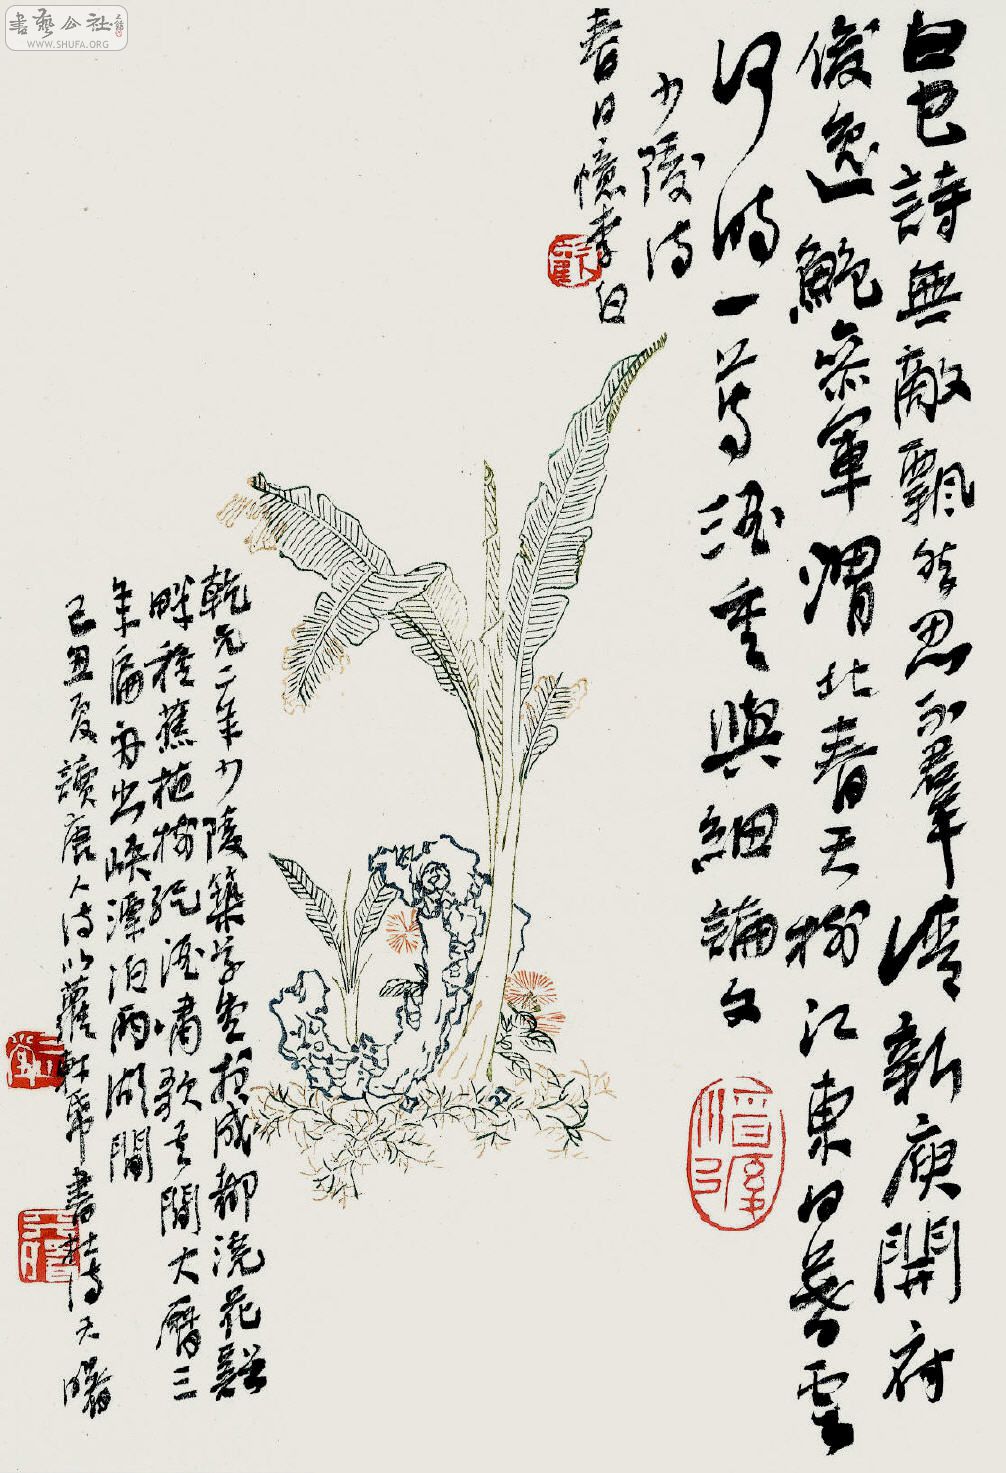 書藝公社
WWW.SHUFA.ORG
白也詩無敵飄然思不羣清新庾開府
俊逸鮑參軍渭北春天樹江東日暮雲
何時一尊酒重與細論文
少陵詩
春日憶李白
乾元二年少陵築草堂於成都浣花谿
畔種蕉植樹縱酒嘯歌其間大曆三
年扁舟出峽漂泊兩湖間
己丑夏讀唐人詩以蘿軒箋書杜詩天曙